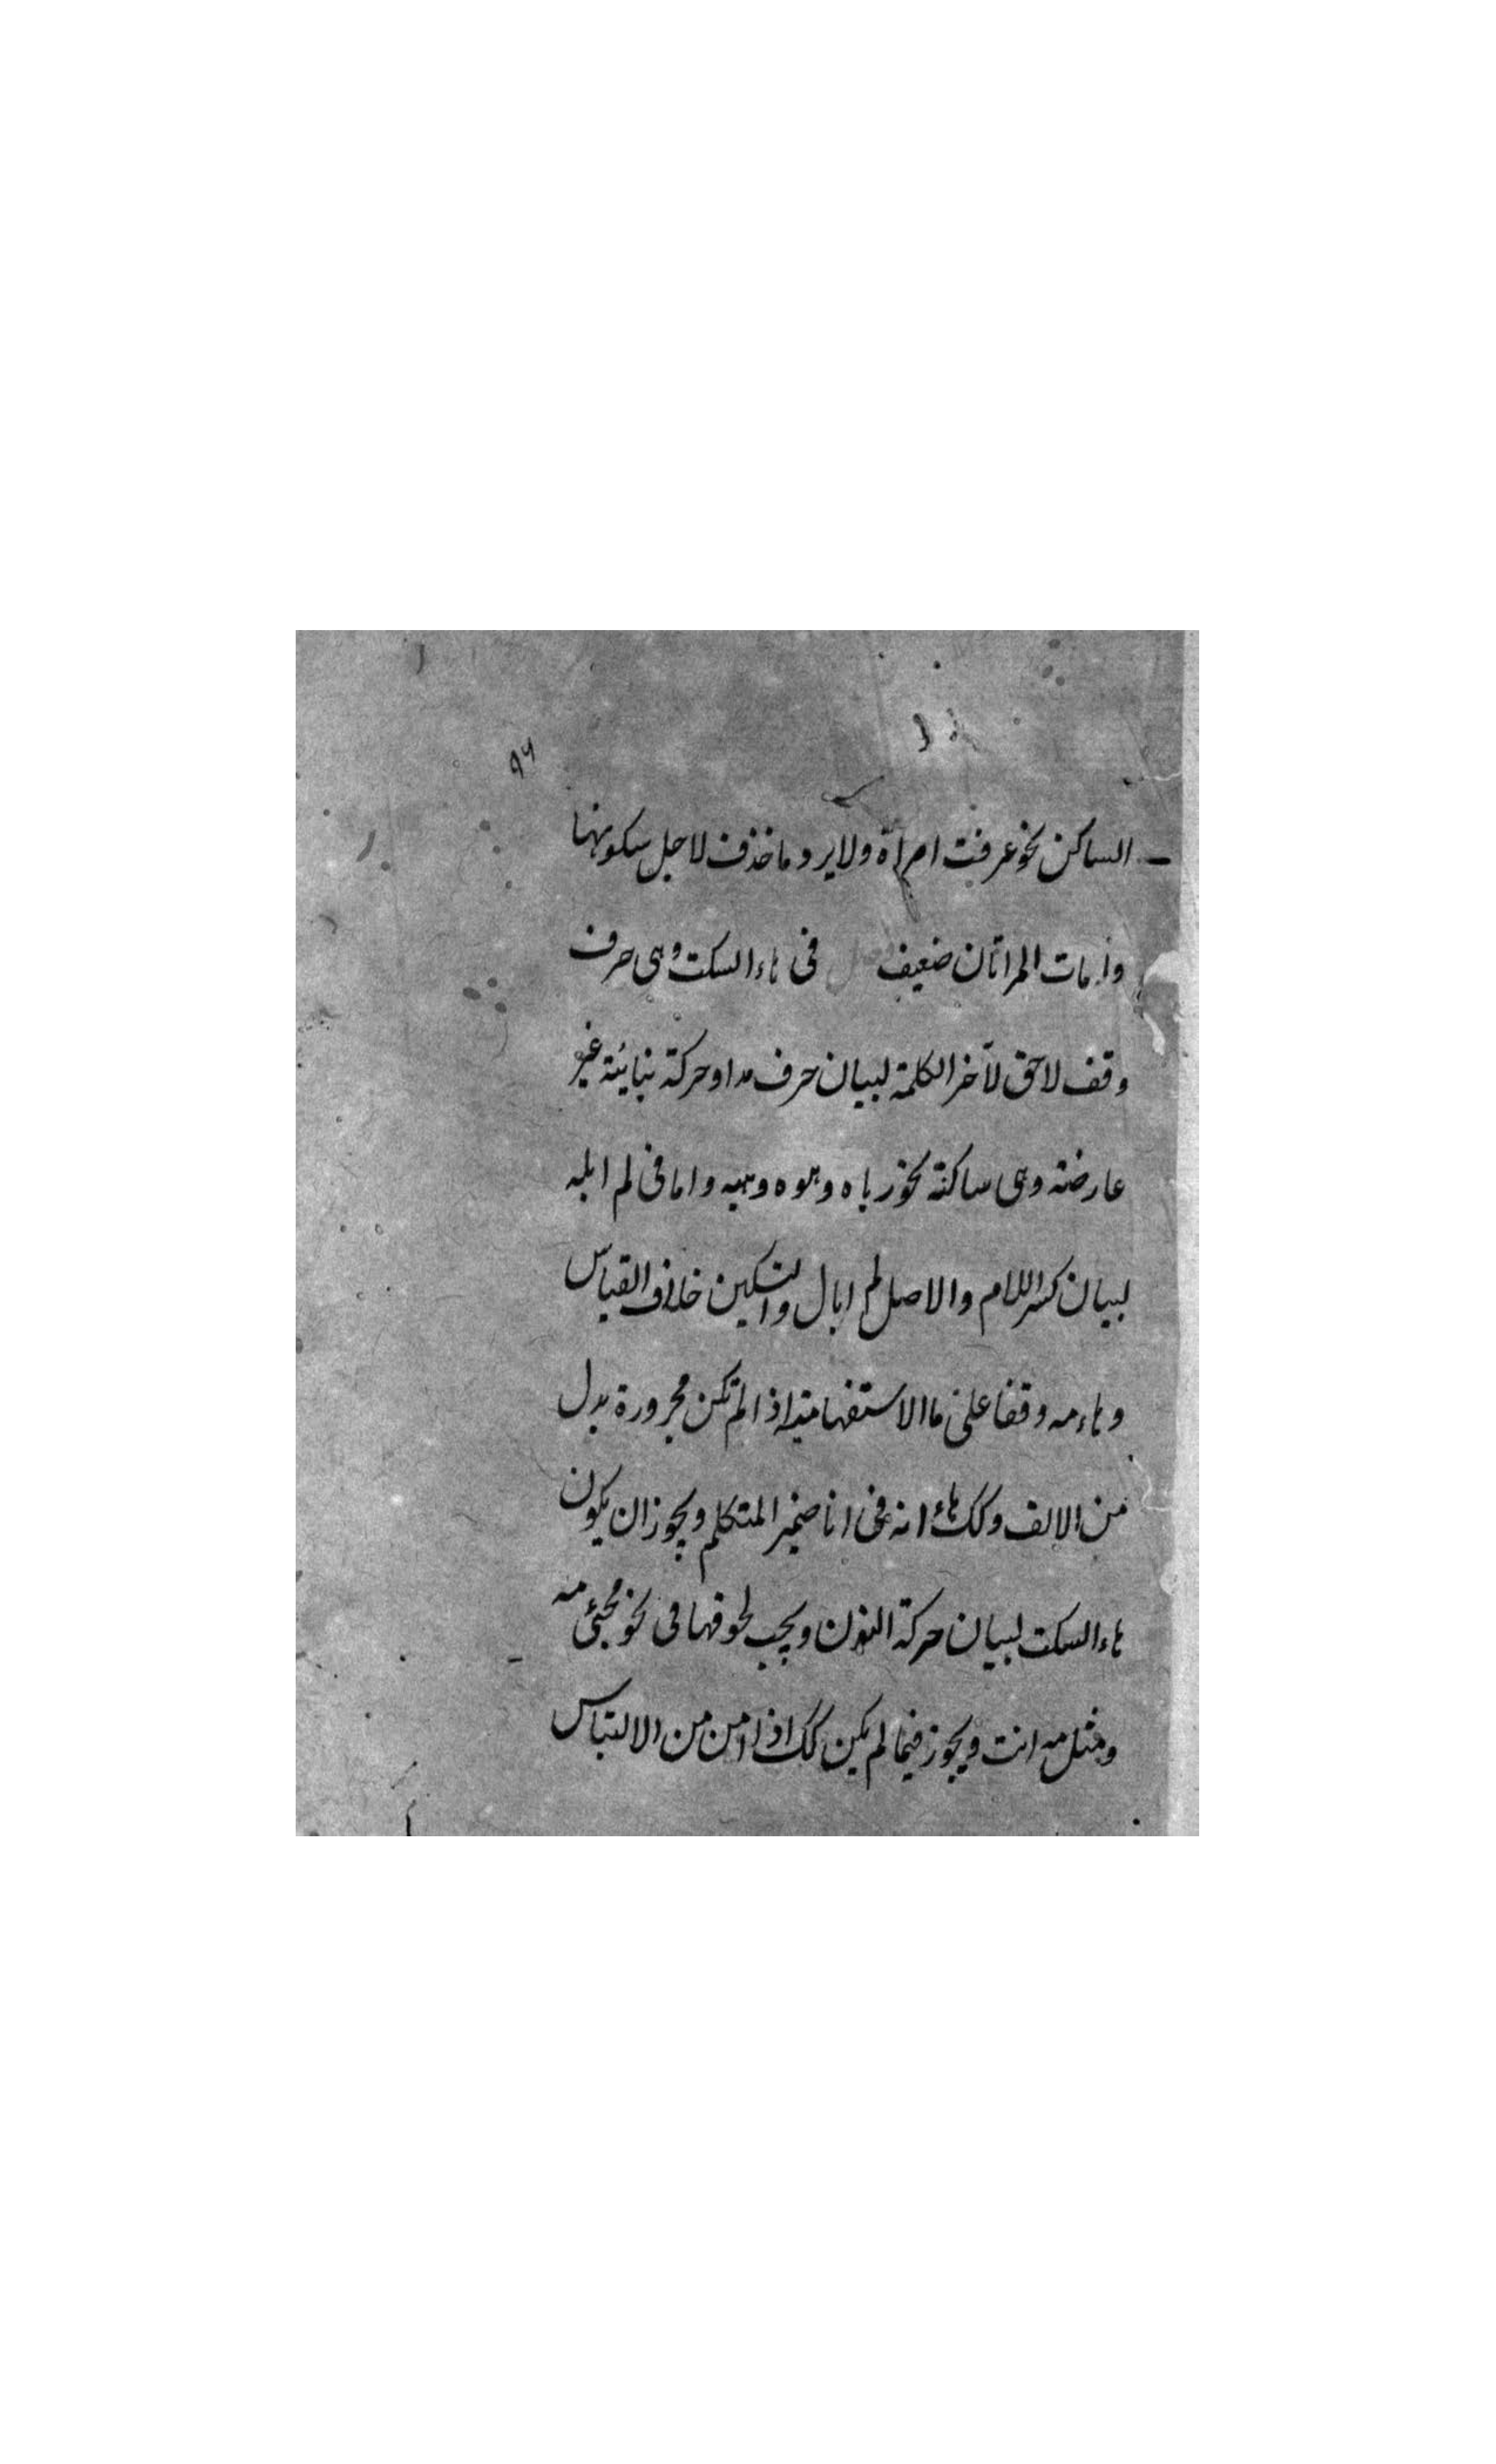 ٩٦
الساكن نحو عرفت امراة ولا يرد ما حذف لاجل سكونها
و رمات المراتان ضعيف فى هاء السكت وهى حرف
وقف لاحق لآخر الكلمة لبيان حرف مد او حركة بنائية غير
عارضة وهى ساكنة نحو زياه وهوه وهيه واما فى لم ابله
لبيان كسر اللام والاصل لم ابال والتسكين خلاف القياس
وهاء مه وقفا على ما الاستفهامية اذا لم تكن مجرورة بدل
من الالف وكك هاء انه فى انا ضمير المتكلم ويجوز ان يكون
هاء السكت لبيان حركة النون ويجب لحوقها فى نحو مجئ مه
ومثل مه انت ويجوز فيما لم يكن كك اذا امن من الالتباس